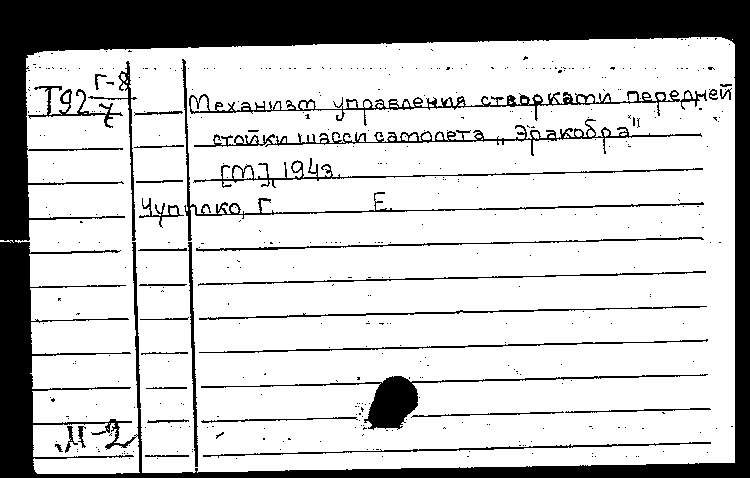 Т92 Г-8/7
Механизм управления створками передней
стойки шасси самолета „Эракобра"
[М], 1943.
Чуппако, Г. Е.
М-2